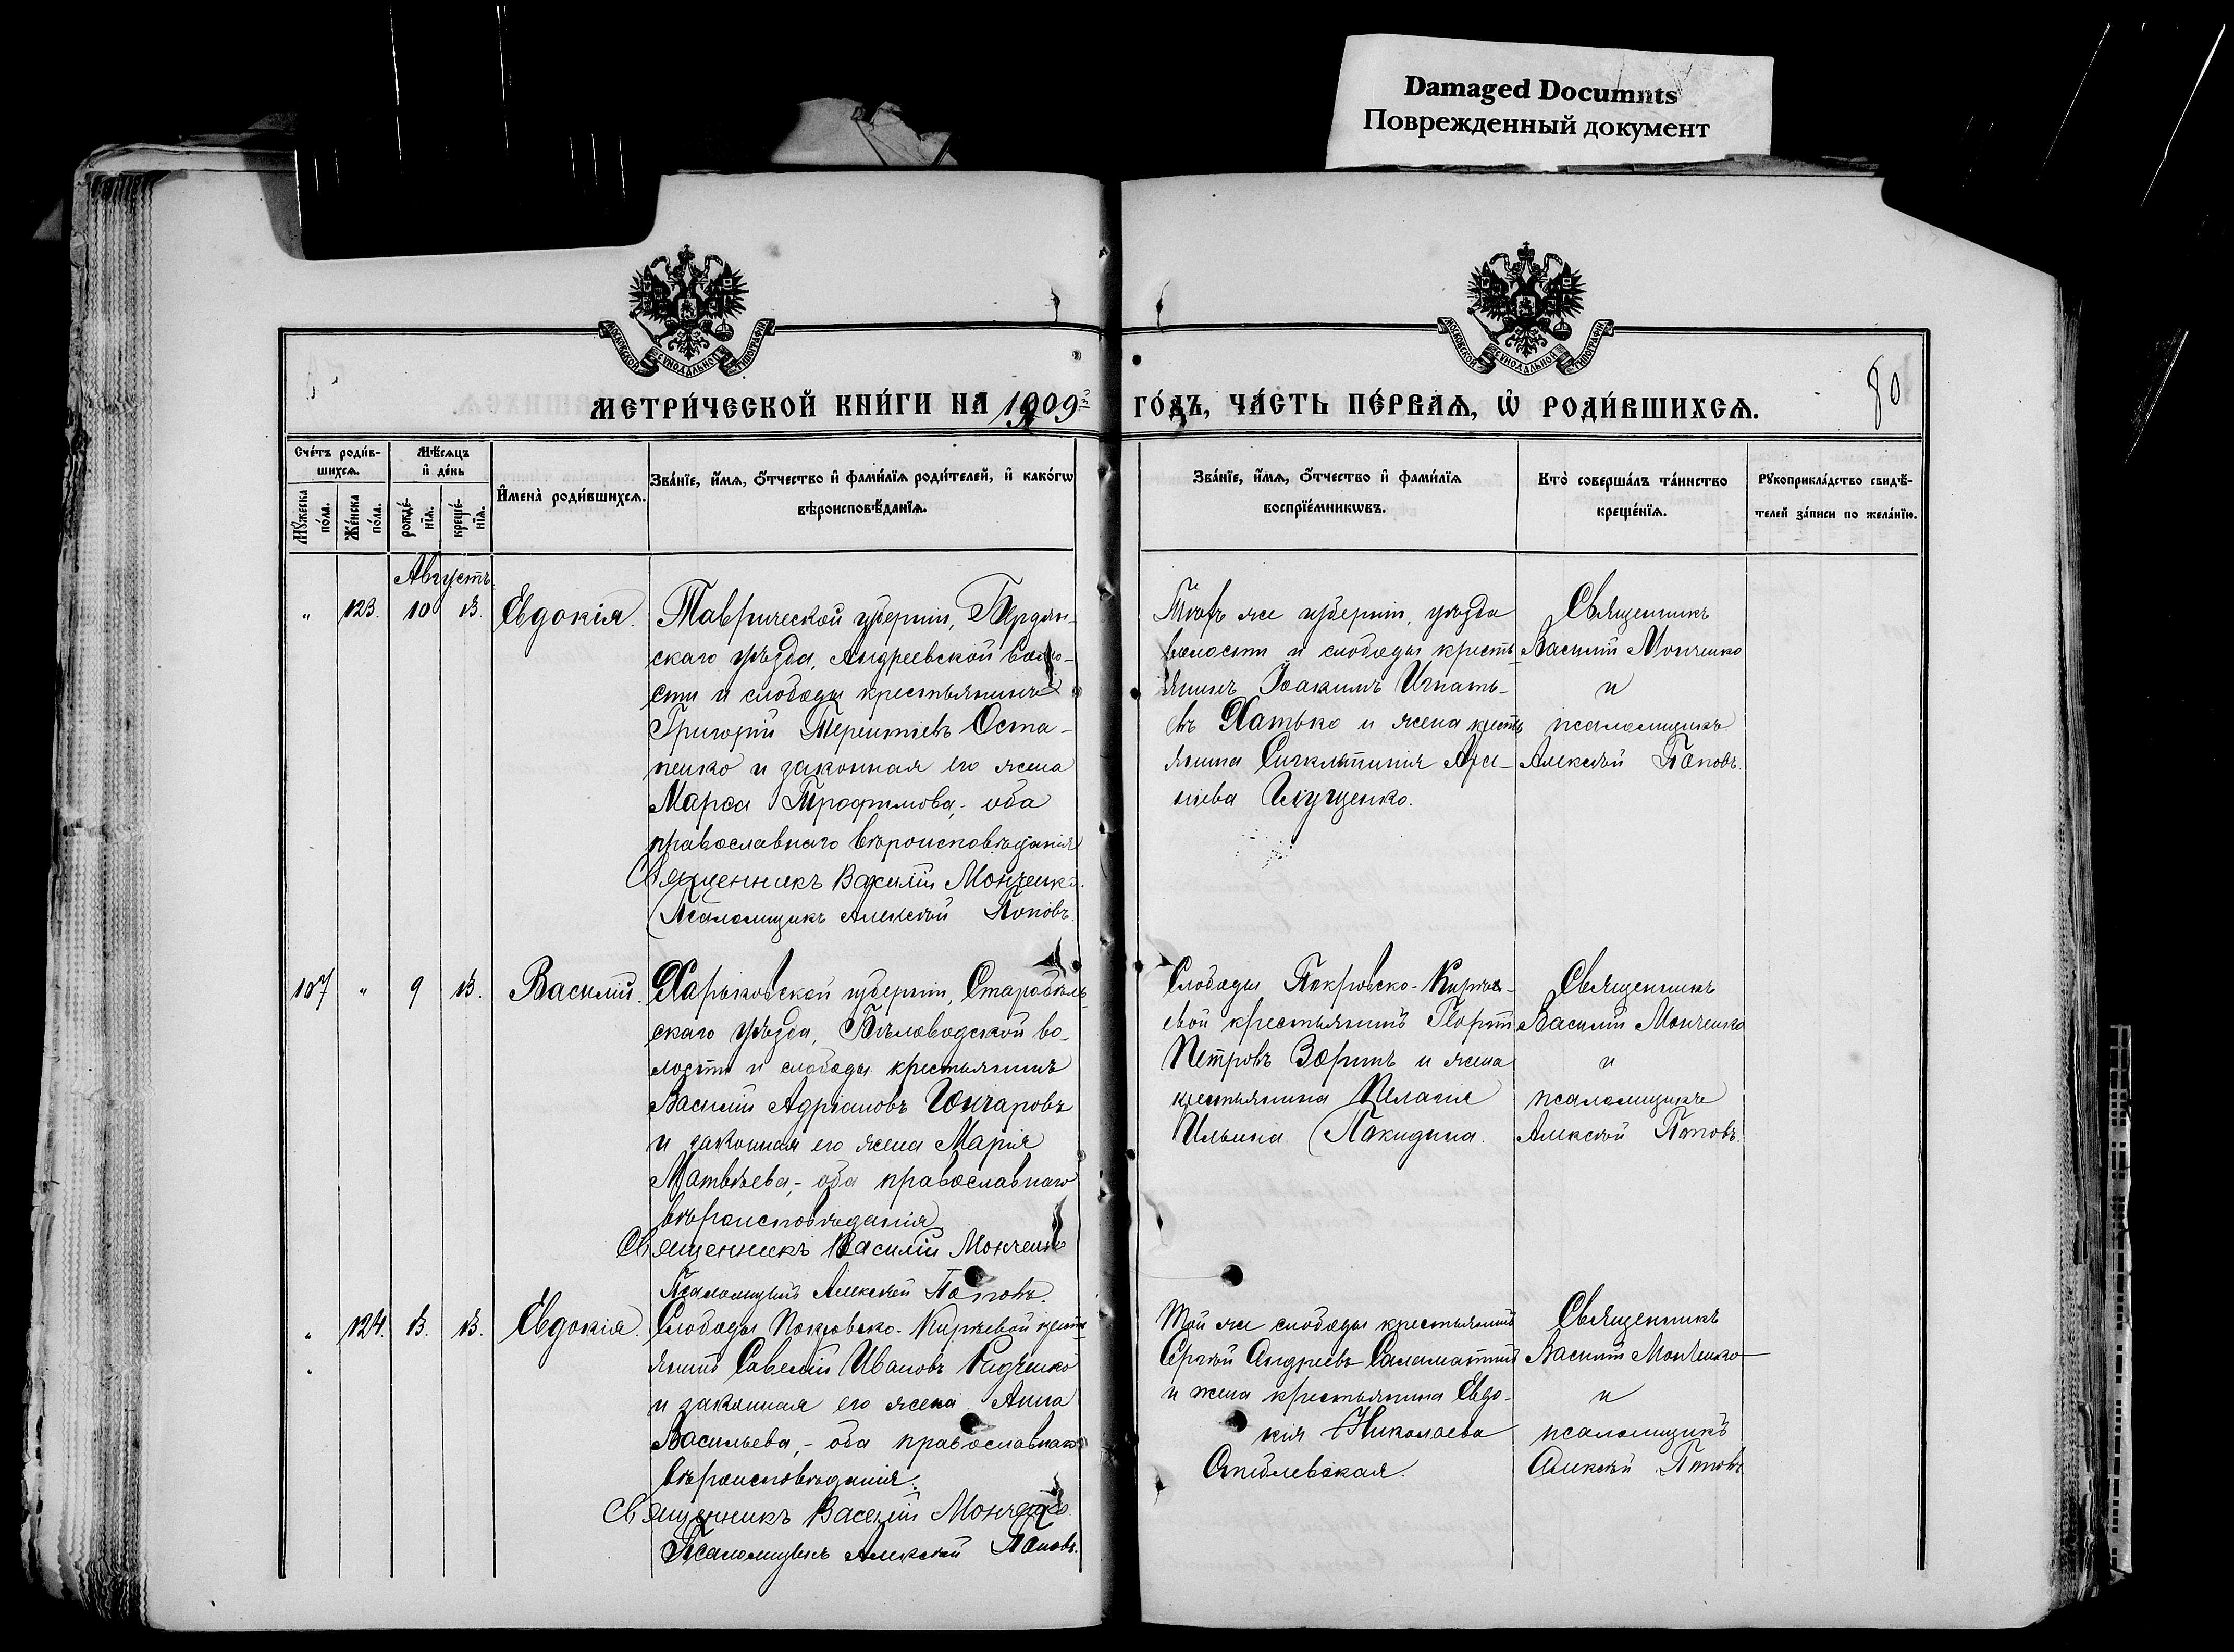 Damaged Documnts
Поврежденный документ
МОСКОВСКОЙ СѴНОДАЛЬНОЙ ТИПОГРАФІИ
МОСКОВСКОЙ СѴНОДАЛЬНОЙ ТИПОГРАФІИ
МЕТРИ́ЧЕСКОЙ КНИ́ГИ НА 1909й
ГО́ДЪ, ЧА́СТЬ ПЕ́РВАѦ, Ѽ РОДИ́ВШИХСѦ.
80
Сче́тъ роди́в-
шихсѧ.
Мꙋ́жеска
по́ла.
Же́нска
по́ла.
Мѣ́сѧцъ
и҆ де́нь
рожде́-
нїѧ.
креще́-
нїѧ.
И҆мена̀ роди́вшихсѧ.
Зва́нїе, и҆́мѧ, ѻ҆́тчество и҆ фами́лїѧ роди́телей, и҆ како́гѡ
вѣроисповѣ́данїѧ.
Зва́нїе, и҆́мѧ, ѻ҆́тчество и҆ фами́лїѧ
воспрїе́мникѡвъ.
Кто̀ соверша́лъ та́инство
креще́нїѧ.
Рꙋкоприкла́дство свидѣ́-
телей за́писи по жела́нїю.
Августъ
" 123. 10 13. Евдокія.
Таврической губерніи, Бердян-
скаго уѣзда, Андреевской воло-
сти и слободы крестьянинъ
Григорій Терентіевъ Оста-
пенко и законная его жена
Марѳа Трофимова,- оба
православнаго вѣроисповѣданія
Священникъ Василій Монченко.
Псаломщикъ Алексѣй Поповъ.
Той же губерніи, уѣзда
волости и слободы кресть-
янинъ Іоакимъ Игнать-
евъ Хатько и жена кресть
янина Синклитикія Арсе-
ніева
Священникъ
Василій Монченко
и
псаломщикъ
Алексѣй Поповъ.
107 " 9 13. Василій.
Харьковской губерніи, Старобѣль-
скаго уѣзда, Бѣловодской во-
лости и слободы крестьянинъ
Василій Адріановъ Гончаровъ
и законная его жена Марія
Матвѣева,- оба православнаго
вѣроисповѣданія
Священникъ Василій Монченко
Псаломщикъ Алексѣй Поповъ.
Слободы Покровско-Кирѣе-
вой крестьянинъ Георгій
Петровъ Зоринъ и жена
крестьянина Пелагія
Ильина Покидина.
Священникъ
Василій Монченко
и
псаломщикъ
Алексѣй Поповъ.
" 124. 13. 13. Евдокія.
Слободы Покровско-Кирѣевой кресть
янинъ Савелій Ивановъ Радченко
и законная его жена Анна
Васильева,- оба православнаго
вѣроисповѣданія.
Священникъ Василій Монченко
Псаломщикъ Алексѣй Поповъ.
Той же слободы крестьянинъ
Сергѣй Андреевъ Саламатинъ
и жена крестьянина Евдо-
кія Николаева
Священникъ
Василій Монченко
и
псаломщикъ
Алексѣй Поповъ